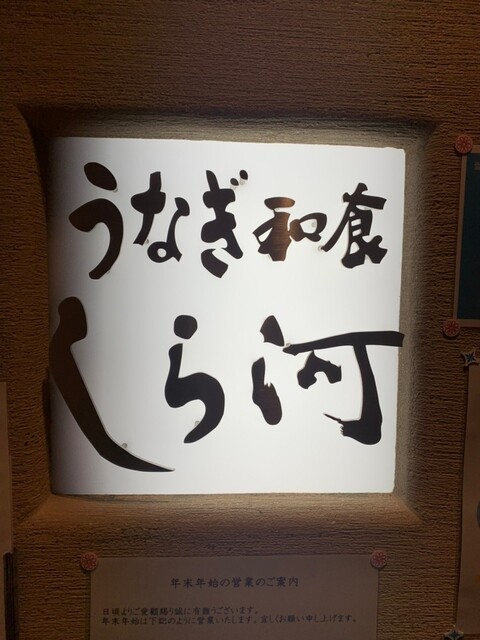 うなぎ和食
しら河
年末年始の営業のご案内
日頃よりご愛顧賜り誠に有難うございます。
年末年始は下記のように営業いたします。宜しくお願い申し上げます。